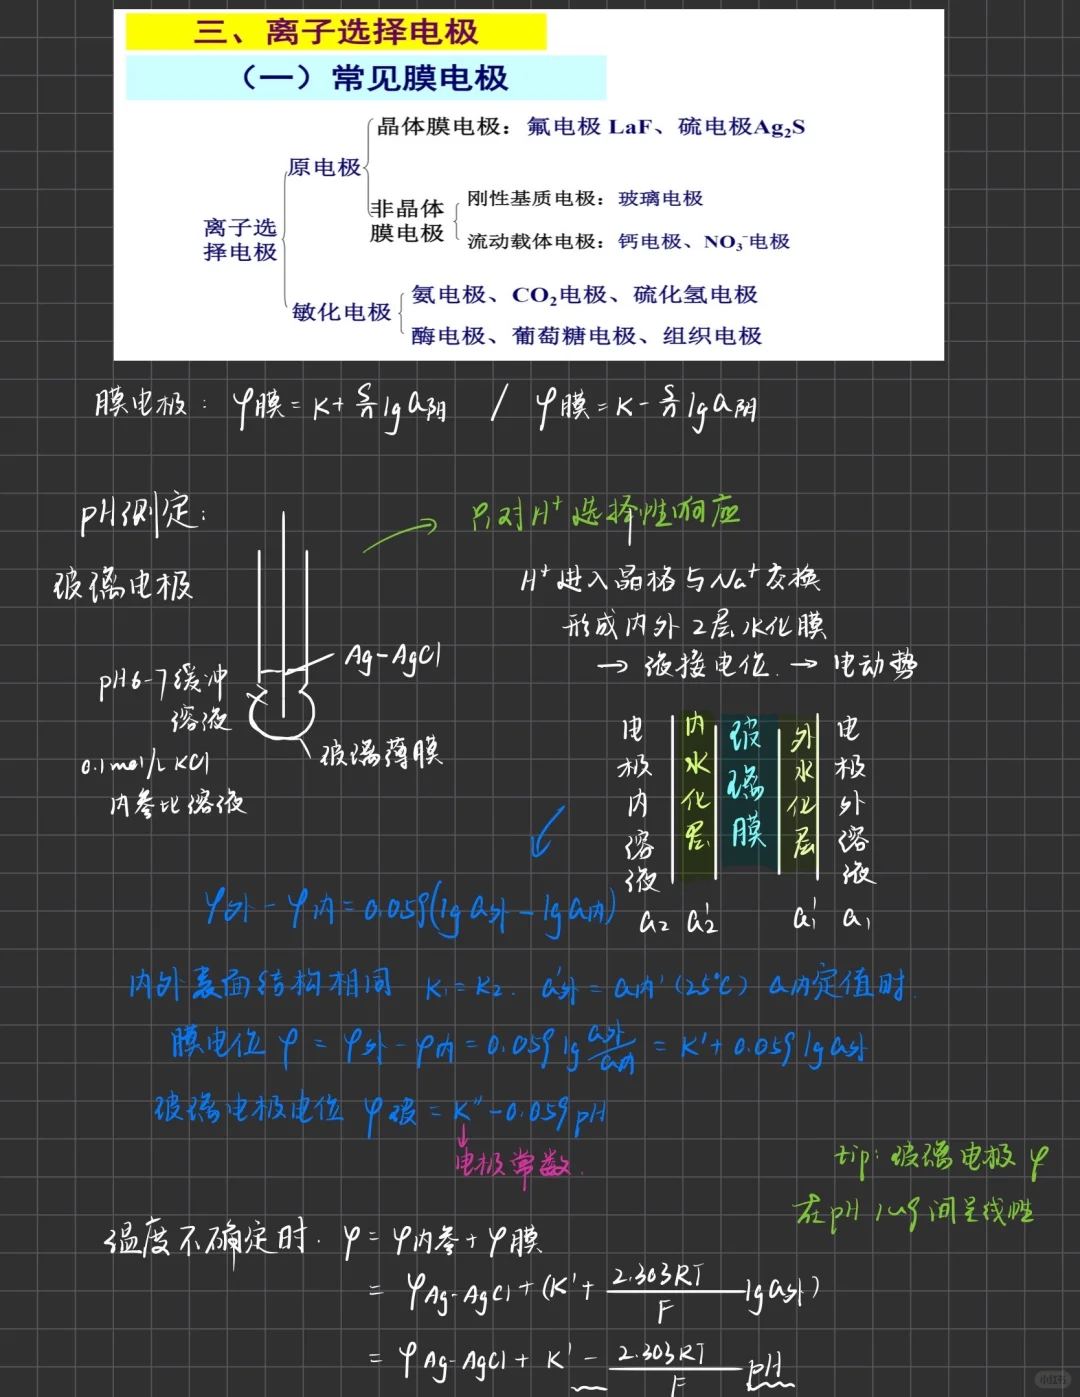 三、离子选择电极
（一）常见膜电极
晶体膜电极：氟电极 LaF、硫电极Ag₂S
原电极
非晶体
膜电极
刚性基质电极：玻璃电极
流动载体电极：钙电极、NO₃⁻电极
离子选
择电极
敏化电极
氨电极、CO₂电极、硫化氢电极
酶电极、葡萄糖电极、组织电极
膜电极：φ膜=K+S/n lg a阳 / φ膜=K-S/n lg a阴
pH测定：
只对H⁺选择性响应
玻璃电极
H⁺进入晶格与Na⁺交换
形成内外2层水化膜
→液接电位.→电动势
Ag-AgCl
pH6-7缓冲
溶液
玻璃薄膜
0.1mol/L KCl
内参比溶液
电极内溶液
内水化层
玻璃膜
外水化层
电极外溶液
a₂ a₂' a₁' a₁
φ外-φ内=0.059(lg a外-lg a内)
内外表面结构相同 K₁=K₂. a'外=a内'(25℃) a内定值时.
膜电位φ=φ外-φ内=0.059 lg a外/a内=K'+0.059 lg a外
玻璃电极电位 φ玻=K''-0.059pH
电极常数.
tip：玻璃电极φ
在pH 1~9间呈线性
温度不确定时. φ=φ内参+φ膜
=φAg-AgCl+(K'+2.303RT/F lg a外)
=φAg-AgCl+K'-2.303RT/F pH
小红书